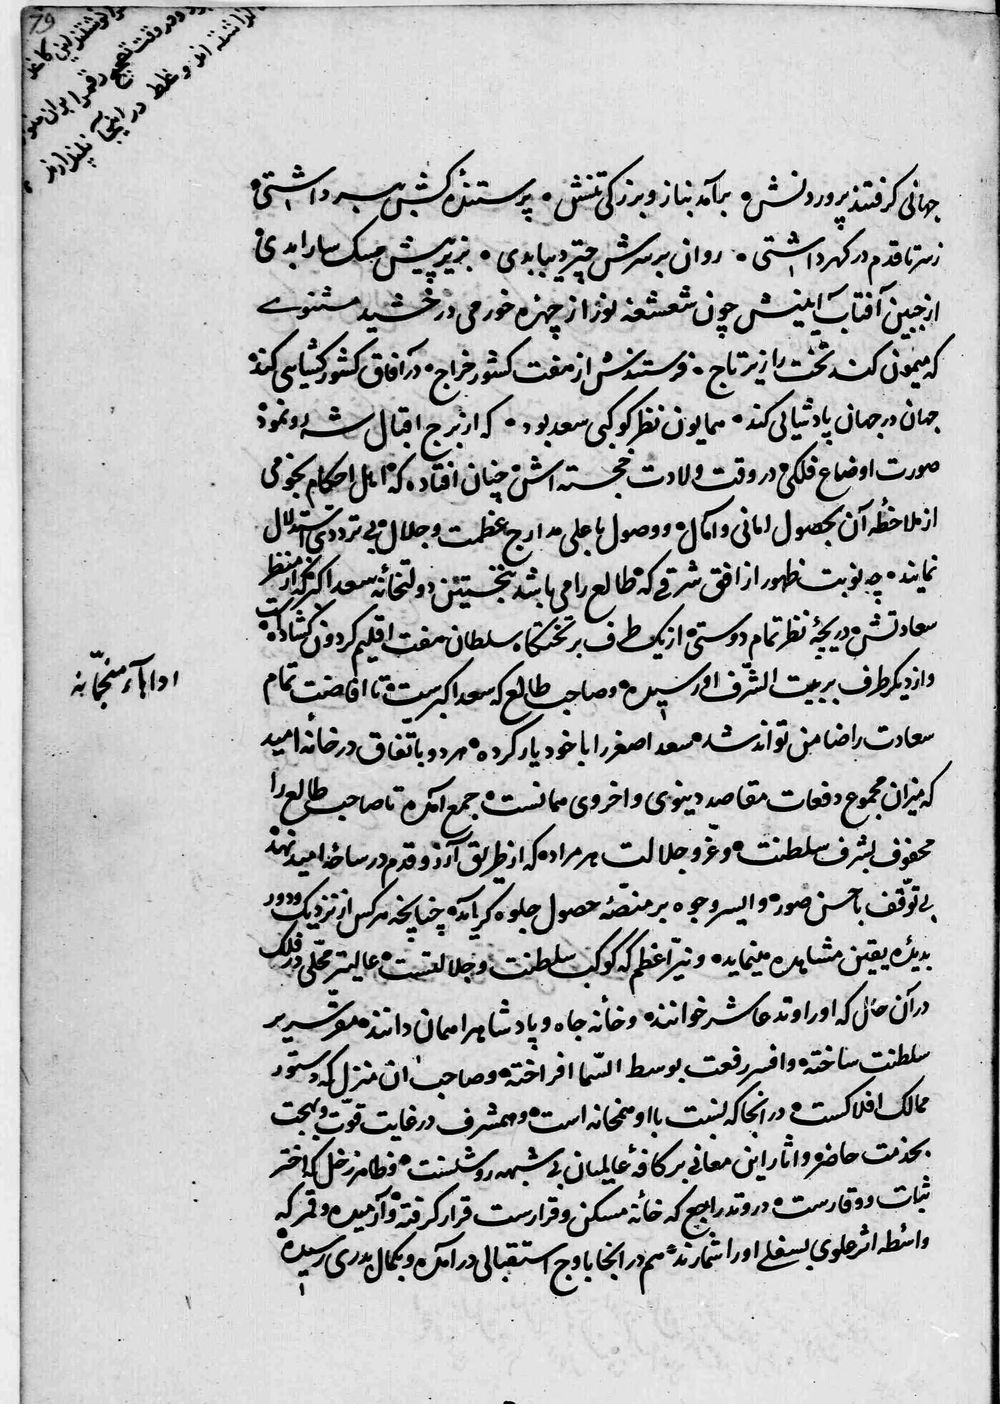 79
در اینجا نپندارند
جهانی گرفتند پروردنش • برآمد بناز و بزرگی تنش • پرستنده کش بسر داشتی •
ز سر تا قدم در گهر داشتی • روان بر سرش چتر دیبا بدی • بزیر پیش مشک سارا بدی
از جبین آفتاب آیینش چون شعشعه نور از چهره خور می درخشید مثنوے
که میمون کند تخت را زیر تاج • فرستندش از هفت کشور خراج • در آفاق کشورگشایی کند
جهان در جهان پادشایی کند • همایون نظر کوکبی سعد بود • که از برج اقبال شه رو نمود
صورت اوضاع فلکی در وقت ولادت خجسته اش چنان افتاده که اهل احکام نجومی
از ملاحظه آن بحصول امانی و آمال • و وصول باعلی مدارج عظمت و جلال بی ترددی استدلال
نمایند • چه نوبت ظهور از افق شرقی که طالع رامی باشد بنخستین دولتخانه سعد اکبر که از منظر
سعادتش دریچه نظر تمام دوستی از یک طرف بر تختگاه سلطان هفت اقلیم گردون گشاده است
و از دیگر طرف بر بیت الشرف او رسیده • و صاحب طالع که سعد اکبرست • تا افاضت تمام
اداهاء منجمانه
سعادت را ضامن تواند شد • سعد اصغر را با خود یار کرده • هر دو باتفاق در خانه امید
که میزان مجموع دفعات مقاصد دینوی و اخروی همانست • جمع آمده تا صاحب طالع را
محفوف بشرف سلطنت • و عز و جلالت هر مراد که از طریق آرزو قدم در ساحه امید نهند
بی توقف باحسن صوره و ایسر وجوه بر منصه حصول جلوه گر آید • چنانچه هر کس از نزدیک و دور
بدیده یقین مشاهده مینماید • و نیر اعظم که کوکب سلطنت و جلالتست • عالیتر محلی در فلک
در آن حال که او را وتد عاشر خوانند • و خانه جاه و پادشاهی همان دانند • مقر سریر
سلطنت ساخته • و افسر رفعت بوسط السما افراخته • و صاحب ان منزل که دستور
ممالک افلاکست • در انجا که بنسبت با او همخانه است • و همشرف در غایت قوت و بهجت
بخدمت حاضر • و اثار این معانی بر کافه عالمیان بی شبهه روشنست • و ظاهر • زحل که اختر
ثبات و وقارست • در وتد رابع که خانه مسکن و قرارست قرار گرفته • و آرمیده • و قمر که
واسطه اثر علوی بسفلے او را شمارند • هم در انجا باوج استقبالی در آمده • و بکمال بدری رسیده